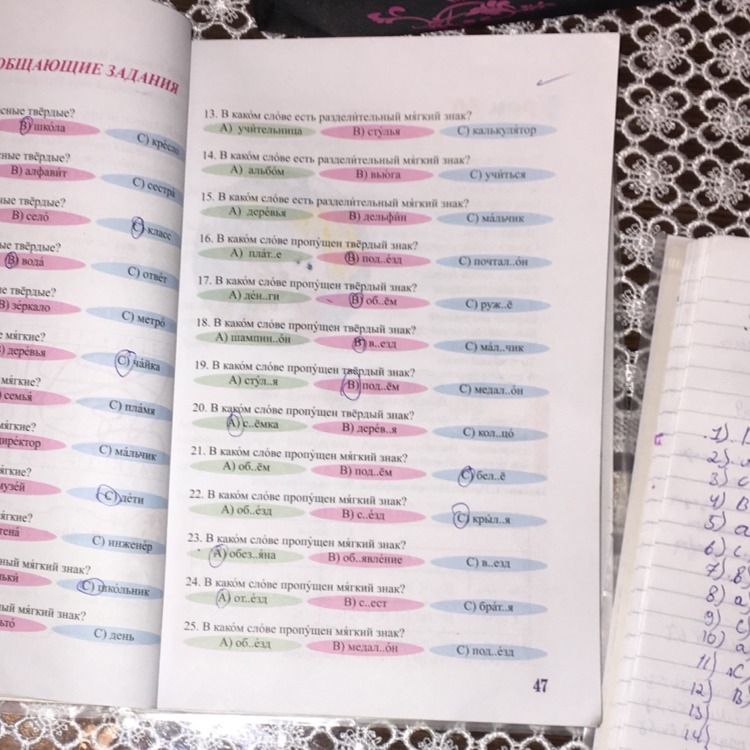 ОБЩАЮЩИЕ ЗАДАНИЯ
сные твёрдые?
B) шко́ла
C) кре́сло
ные твёрдые?
B) алфави́т
C) сестра́
ые твёрдые?
B) село́
C) класс
ые твёрдые?
B) вода́
C) отве́т
е твёрдые?
B) зе́ркало
C) метро́
е мя́гкие?
) дере́вья
C) ча́йка
мя́гкие?
семья́
C) пла́мя
мя́гкие?
ире́ктор
C) ма́льчик
я́гкие?
узе́й
C) де́ти
я́гкие?
тена́
C) инжене́р
ный мя́гкий знак?
ьки́
C) шко́льник
ый мя́гкий знак?
ьто́
C) день
13. В како́м сло́ве есть раздели́тельный мя́гкий знак?
A) учи́тельница B) сту́лья C) калькуля́тор
14. В како́м сло́ве есть раздели́тельный мя́гкий знак?
A) альбо́м B) вью́га C) учи́ться
15. В како́м сло́ве есть раздели́тельный мя́гкий знак?
A) дере́вья B) дельфи́н C) ма́льчик
16. В како́м сло́ве пропу́щен твёрдый знак?
A) пла́т..е B) под..е́зд C) почтал..о́н
17. В како́м сло́ве пропу́щен твёрдый знак?
A) де́н..ги B) об..ём C) руж..ё
18. В како́м сло́ве пропу́щен твёрдый знак?
A) шампин..о́н B) в..езд C) ма́л..чик
19. В како́м сло́ве пропу́щен твёрдый знак?
A) сту́л..я B) под..ём C) медал..о́н
20. В како́м сло́ве пропу́щен твёрдый знак?
A) с..ёмка B) дере́в..я C) кол..цо́
21. В како́м сло́ве пропу́щен мя́гкий знак?
A) об..ём B) под..ём C) бел..ё
22. В како́м сло́ве пропу́щен мя́гкий знак?
A) об..е́зд B) с..е́зд C) кры́л..я
23. В како́м сло́ве пропу́щен мя́гкий знак?
A) обез..я́на B) об..явле́ние C) в..езд
24. В како́м сло́ве пропу́щен мя́гкий знак?
A) от..е́зд B) с..ест C) бра́т..я
25. В како́м сло́ве пропу́щен мя́гкий знак?
A) об..е́зд B) медал..о́н C) под..е́зд
47
1)
2)
3) c
4) B
5) a
6) c
7) B
8) a
9) c
10) a
11) C
12) B
13)
14)